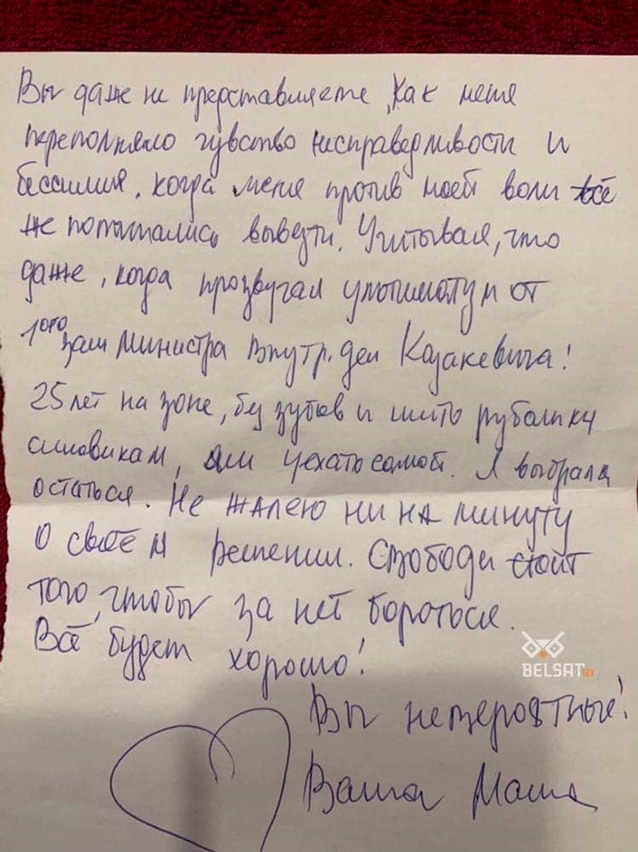 Вы даже не представляете, как меня
переполняло чувство несправедливости и
бессилия, когда меня против моей воли всё
же попытались вывезти. Учитывая, что
даже, когда прозвучал ультиматум от
1ого зам министра внутр. дел Казакевича!
25 лет на зоне, без зубов и шить рубашки
силовикам, или уехать самой. Я выбрала
остаться. Не жалею ни на минуту
о своём решении. Свобода стоит
того, чтобы за неё бороться.
Всё будет хорошо!
BELSAT
Вы невероятные!
Ваша Маша